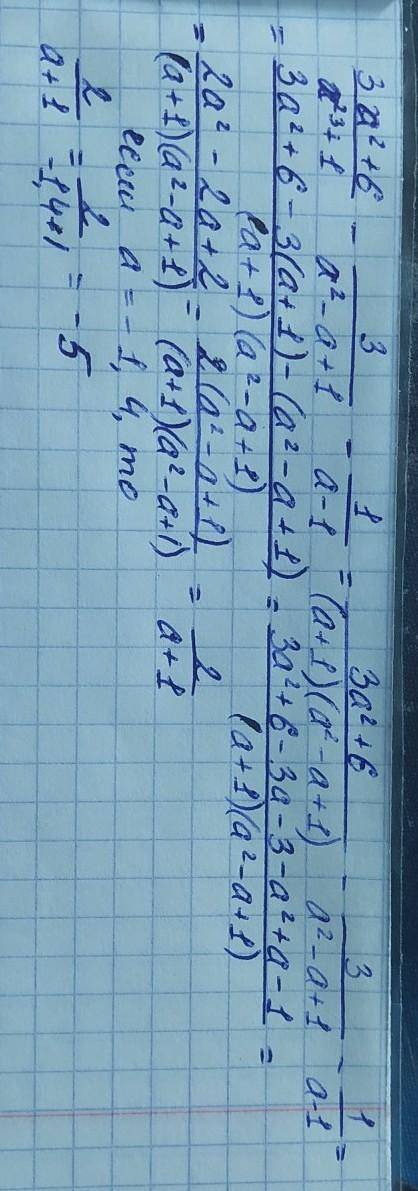 (3a²+6)/(a³+1) - 3/(a²-a+1) - 1/(a-1) = (3a²+6)/((a+1)(a²-a+1)) - 3/(a²-a+1) - 1/(a-1) =
= (3a²+6-3(a+1)-(a²-a+1))/((a+1)(a²-a+1)) = (3a²+6-3a-3-a²+a-1)/((a+1)(a²-a+1)) =
= (2a²-2a+2)/((a+1)(a²-a+1)) = 2(a²-a+1)/((a+1)(a²-a+1)) = 2/(a+1)
если a = -1,4, то
2/(a+1) = 2/(-1,4+1) = -5